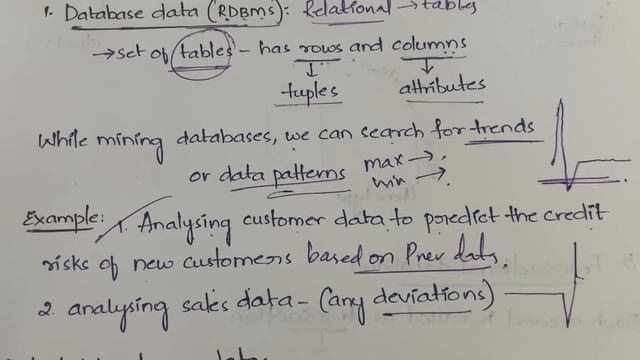 1. Database data (RDBMS): Relational → tables
→ set of tables - has rows and columns
tuples attributes
While mining databases, we can search for trends
or data patterns max →
min →
Example: 1. Analysing customer data to predict the credit
risks of new customers based on Prev data.
2. analysing sales data - (any deviations)